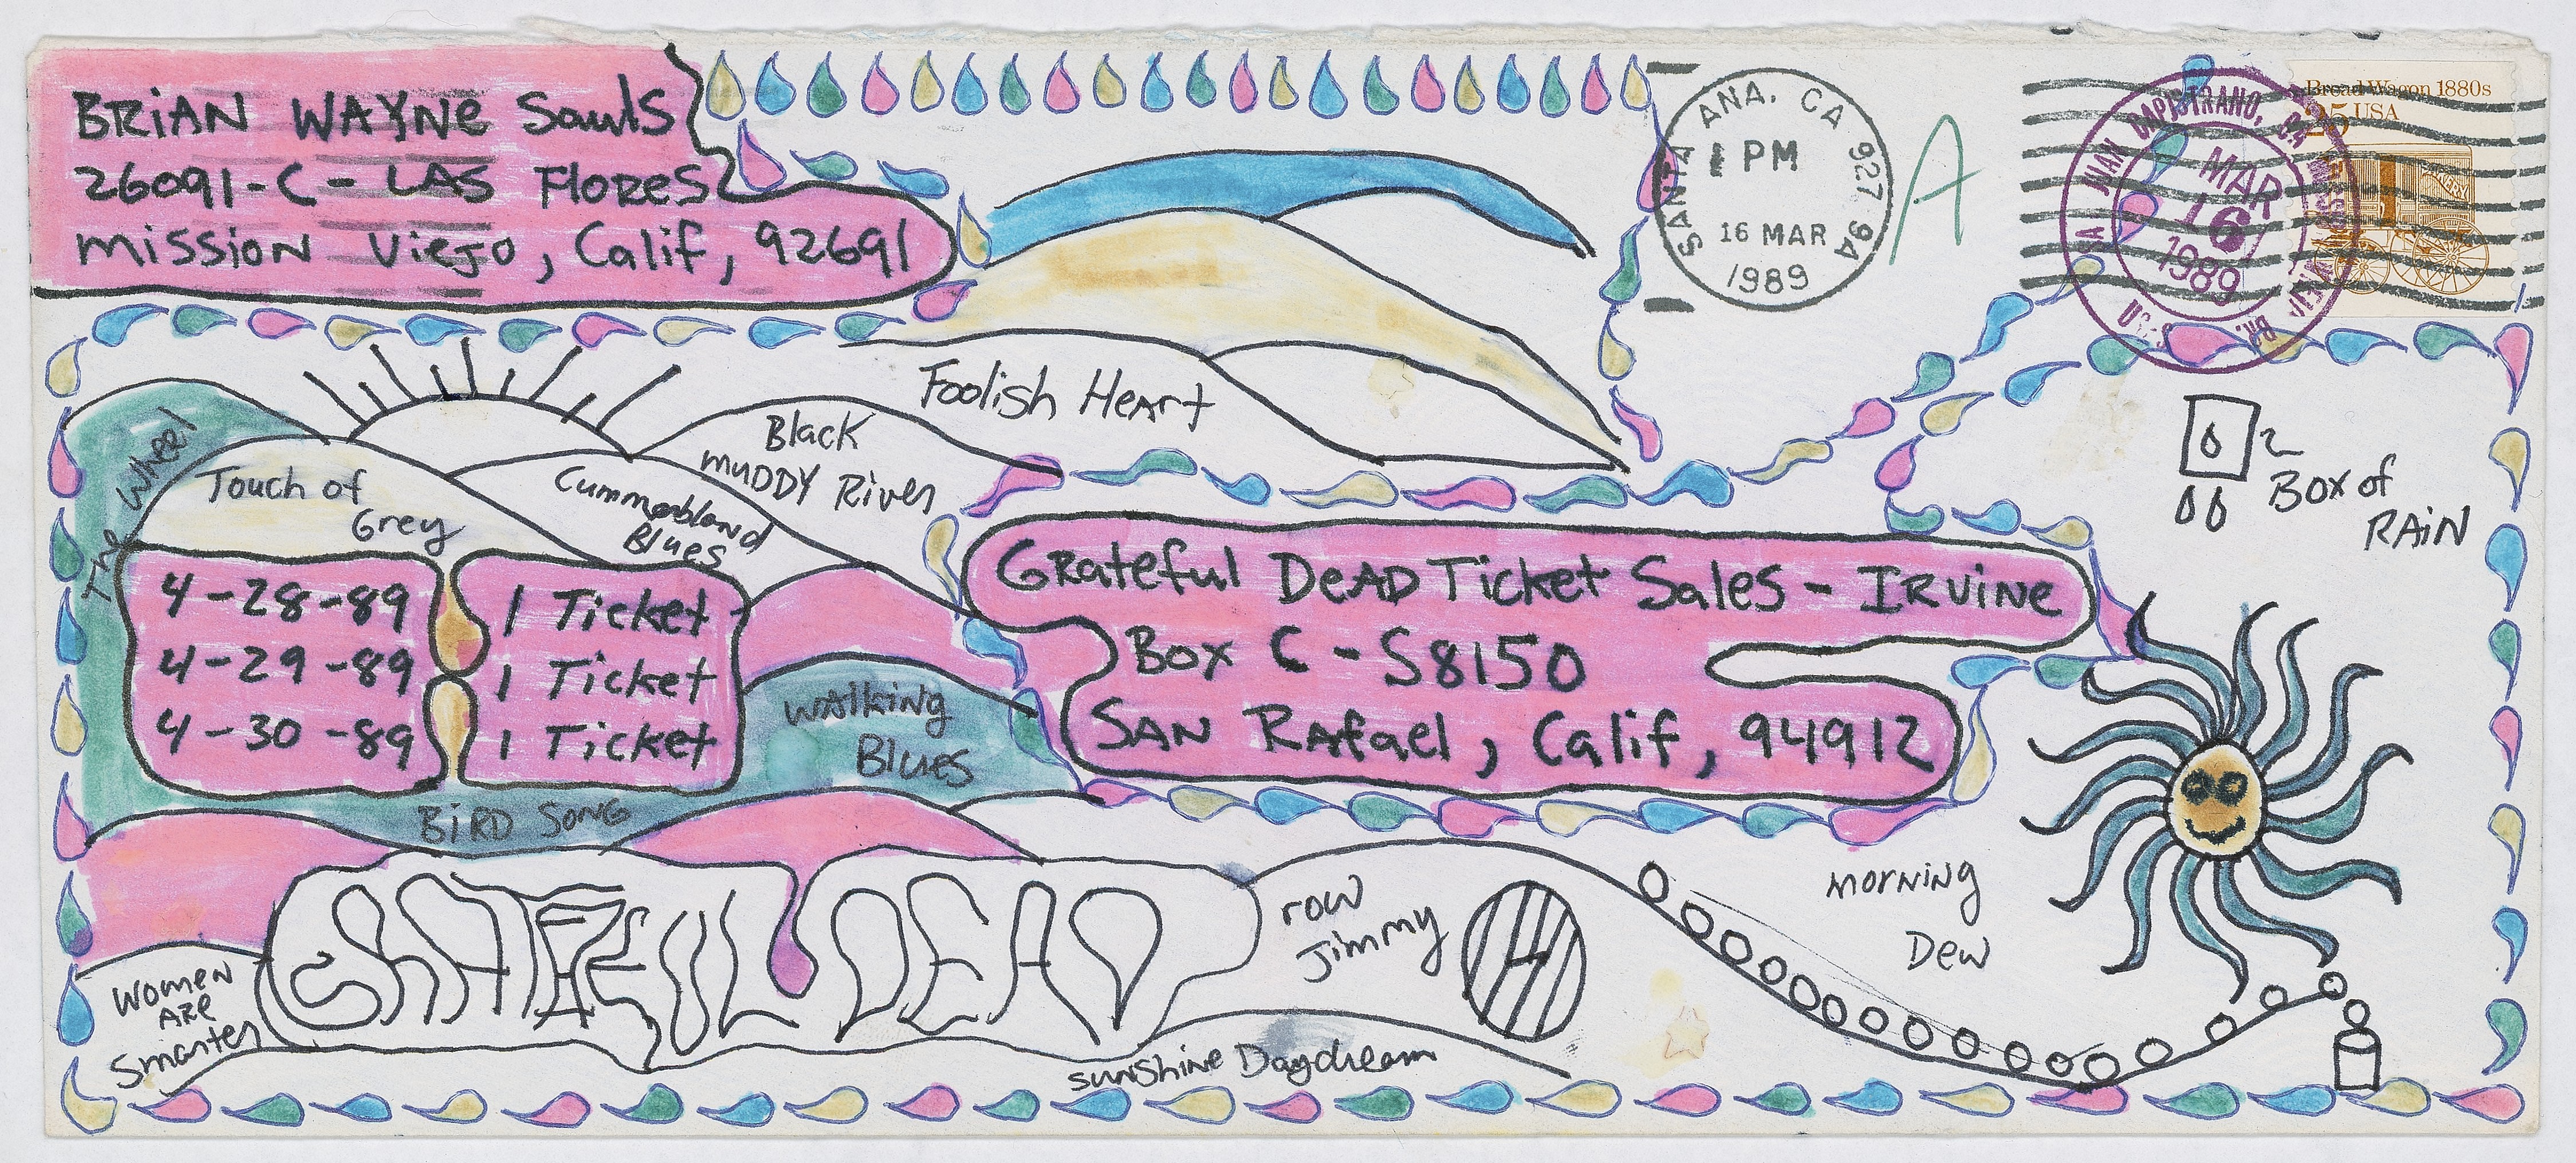 BRIAN WAYNE Sauls
26091-C - LAS Flores
Mission Viejo, Calif, 92691
SANTA ANA, CA 927 9A
1 PM
16 MAR
1989
A
Bread Wagon 1880s
25 USA
BAKERY
SAN JUAN CAPISTRANO, CA
MAR
16
1989
USPO
Foolish Heart
Black
MUDDY River
The Wheel
Touch of
Grey
Cummebland
Blues
Box of
RAIN
4-28-89 1 Ticket
4-29-89 1 Ticket
4-30-89 1 Ticket
Grateful DEAD Ticket Sales - IRVINE
Box C - S8150
SAN Rafael, Calif, 94912
Walking
Blues
BIRD SONG
GRATEFUL DEAD
row
Jimmy
Morning
Dew
Women
ARE
Smarter
Sunshine Daydream